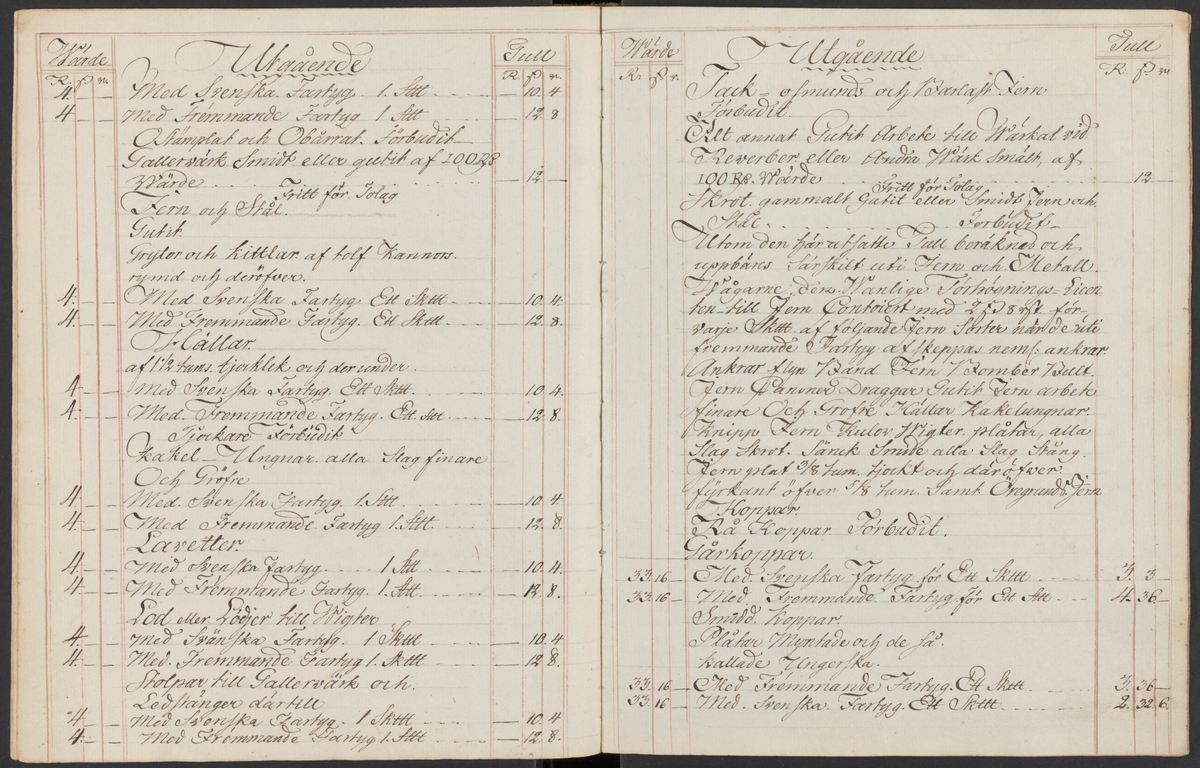 Wärde Utgående Tull
R. ſ. r. R. ſ r.
4. — — Med Svenska Fartyg. 1. Sttt — 10. 4
4 — — Med Frêmmande Fartyg 1 Sttt — 12 8
Ostämplat och Obärrat. Förbudit
Gallervärk Smidt eller gutit af 100 R
Wärde — 12 —
Fritt för Tolag
Jern och Stål.
Gutit.
Grytor och kittlar af tolf Kannors.
rymd och deröfver.
4. — — Med Svenska Fartyg Ett Skttt — 10. 4.
4. — — Med Fremmande Fartyg. Ett Skttt — 12. 8.
Hällar
af 1 1/2 tums tjocklek och derunder.
4 — — Med Svenska Fartyg Ett Skttt. — 10 4.
4. — — Med. Fremmande Fartyg. Ett Sttt — 12. 8.
Tjockare Förbudit
Kakel-Ungnar alla Slag finare
Och Gröfre
4 — — Med Svenska Fartyg. 1. Sttt — 10. 4
4. — — Med Fremmande Fartyg 1. Sttt — 12. 8.
Lavetter.
4. — — Med Svenska Fartyg. 1 Sttt — 10. 4.
4. — — Med Frémmande Fartyg. 1. Sttt — 12. 8.
Lod eller Lödjer till Wigter
4. — — Med Svänska Fartyg. 1 Skttt — 10 4
4. — — Med. Fremmande Fartyg 1. Skttt — 12 8.
Stolpar till Gallervärk och.
Ledstänger dartill
4. — — Med Svenska Fartyg. 1 Skttt — 10. 4
4. — — Med Fremmande Fartyg 1. Sttt — 12. 8.
Wärde Utgående Tull
R. ſ r. R. ſ r.
Tack- osmunds och Barlast Jern
Förbudit.
Alt annat Gutit Arbete till Wärkat vid
Reverber eller Andra Wärk Smält, af
100 R. Wärde — 12 —
Fritt för Tolag
Skrot. gammalt Gutit eller Smidt Jern och.
Stål. Förbudit —
Utom den här utsatte Tull beräknes och
uppbäres särskilt uti Jern och Metall.
Wågarne, den Wanlige Förhögnings-Licen-
ten till Jern Contoiret med 2 ſ 8 rſt för-
varje Skttt af följande Jern Sorter når de uti
fremmande Fartyg afskeppas neml. ankrar.
Ankrar flyn Band Jern Bomber Bult.
Jern Canoner Draggar Gutit Jern arbete
finare Och Gröfre Hällar kakelungnar.
Knipp Jern Kulor Wigter plåtar, alla
Slag Skrot. Sänck Smide alla Slag Stång.
Jern plat 9/8 tum. tjockt och däröfver
fyrkant öfver 5/8 tum. Samt Öregrunds Jern
Koppar.
Rå Koppar Förbudit.
Gårkoppar.
33. 16 — Med. Svenska Fartyg för Ett Skttt 3. 3 —
33. 16 — Med. Fremmande Fartyg för Ett Sttt 4. 36 —
Smidd. Koppar.
Plåtar Myntade och de så.
kallade Ungerska.
33. 16 — Med Frémmande Fartyg. Ett Skttt 3. 36 —
33. 16 — Med. Svenska Fartyg. Ett Skttt 2. 32 6.